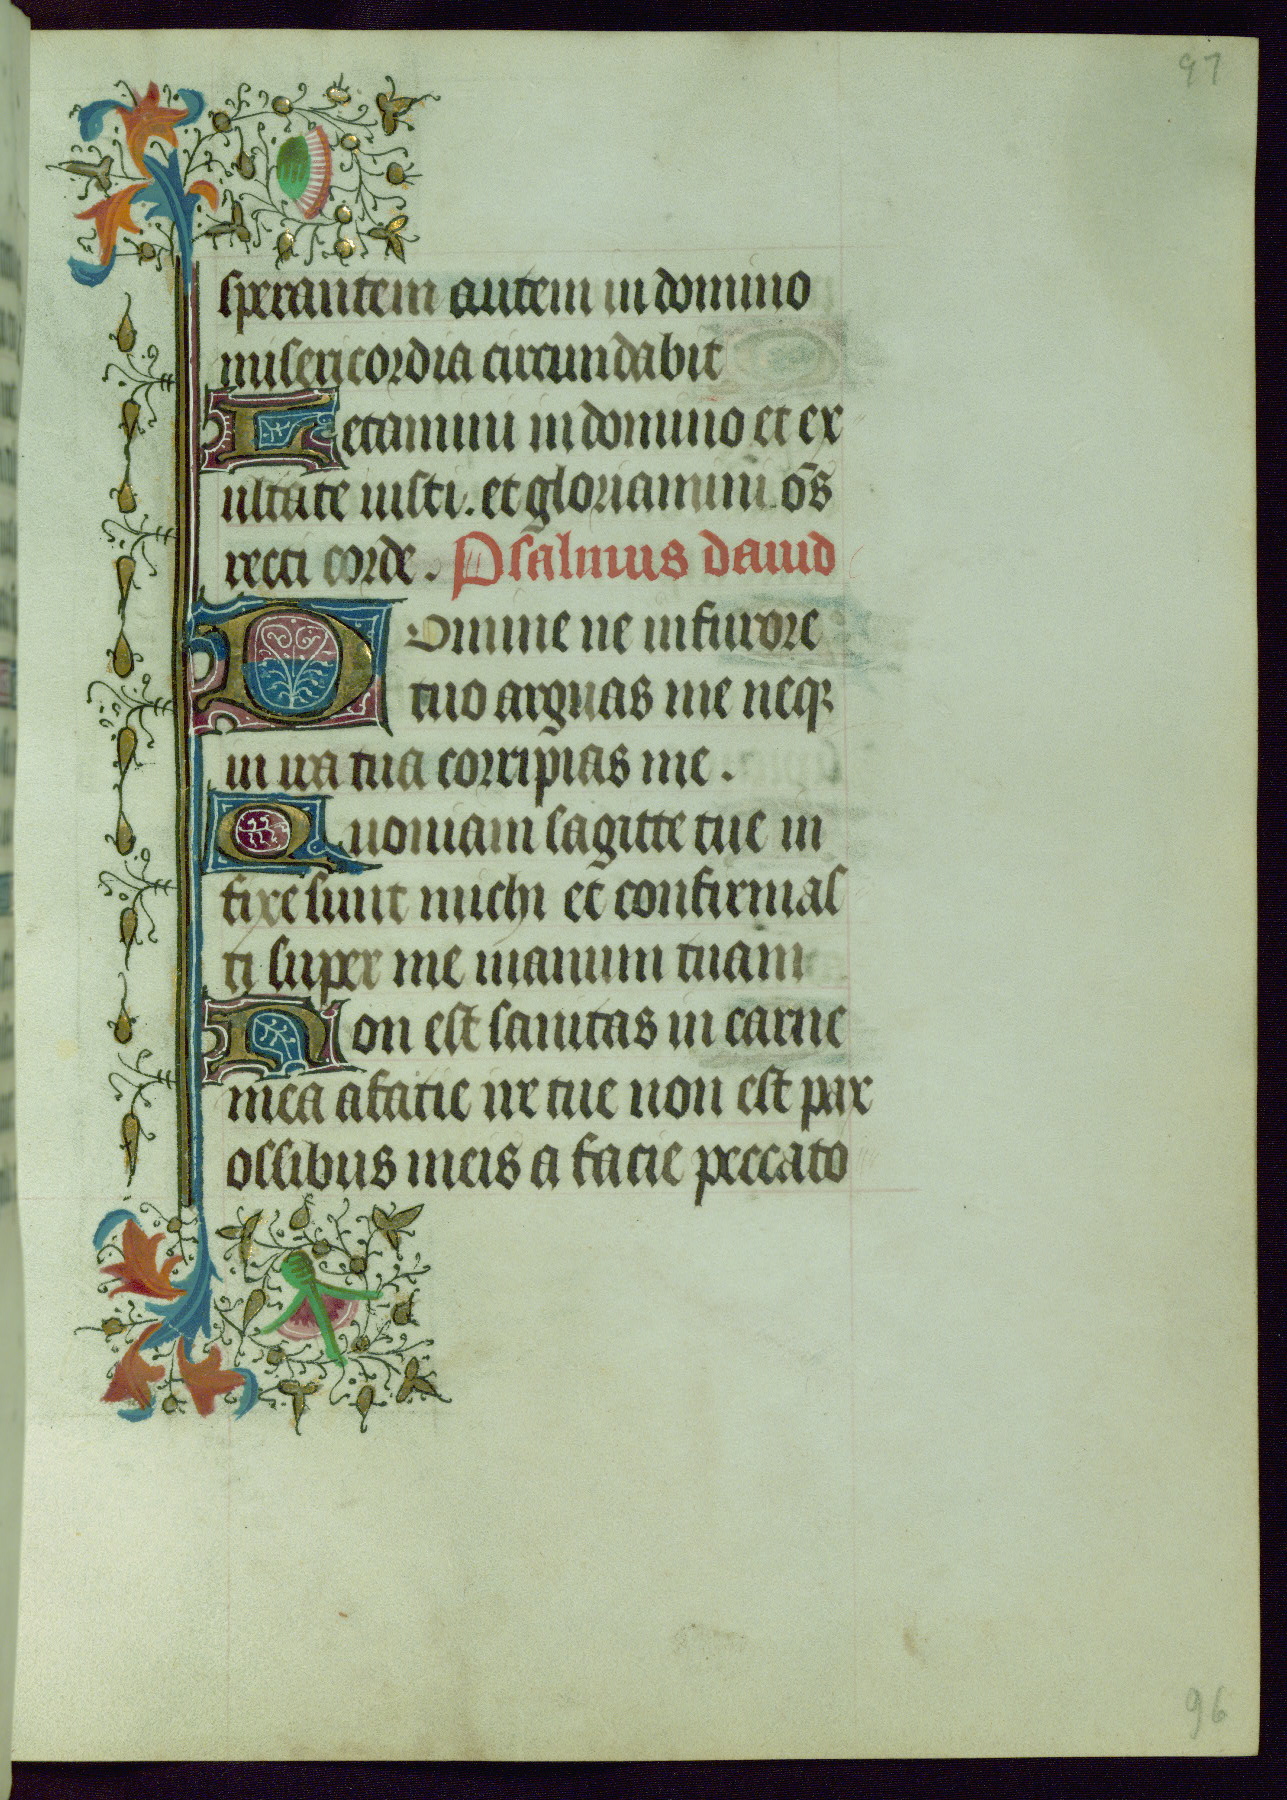 97
sperantem autem in domino
misericordia circundabit
Letamini in domino et ex
ultate iusti. et gloriamini om̄s
recti corde. Psalmus dauid
Domine ne in furore
tuo arguas me neqꝫ
in ira tua corripias me.
Quoniam sagitte tue in
fixe sunt michi et confirmas
ti super me manum tuam
Non est sanitas in carne
mea a facie ire tue non est pax
ossibus meis a facie peccato
96